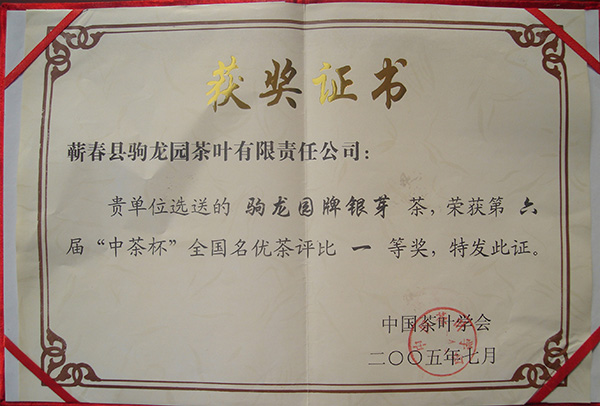 获奖证书
蕲春县驹龙园茶叶有限责任公司：
贵单位选送的 驹龙园牌银芽 茶，荣获第 六
届“中茶杯”全国名优茶评比 一 等奖，特发此证。
中国茶叶学会
二〇〇五年七月